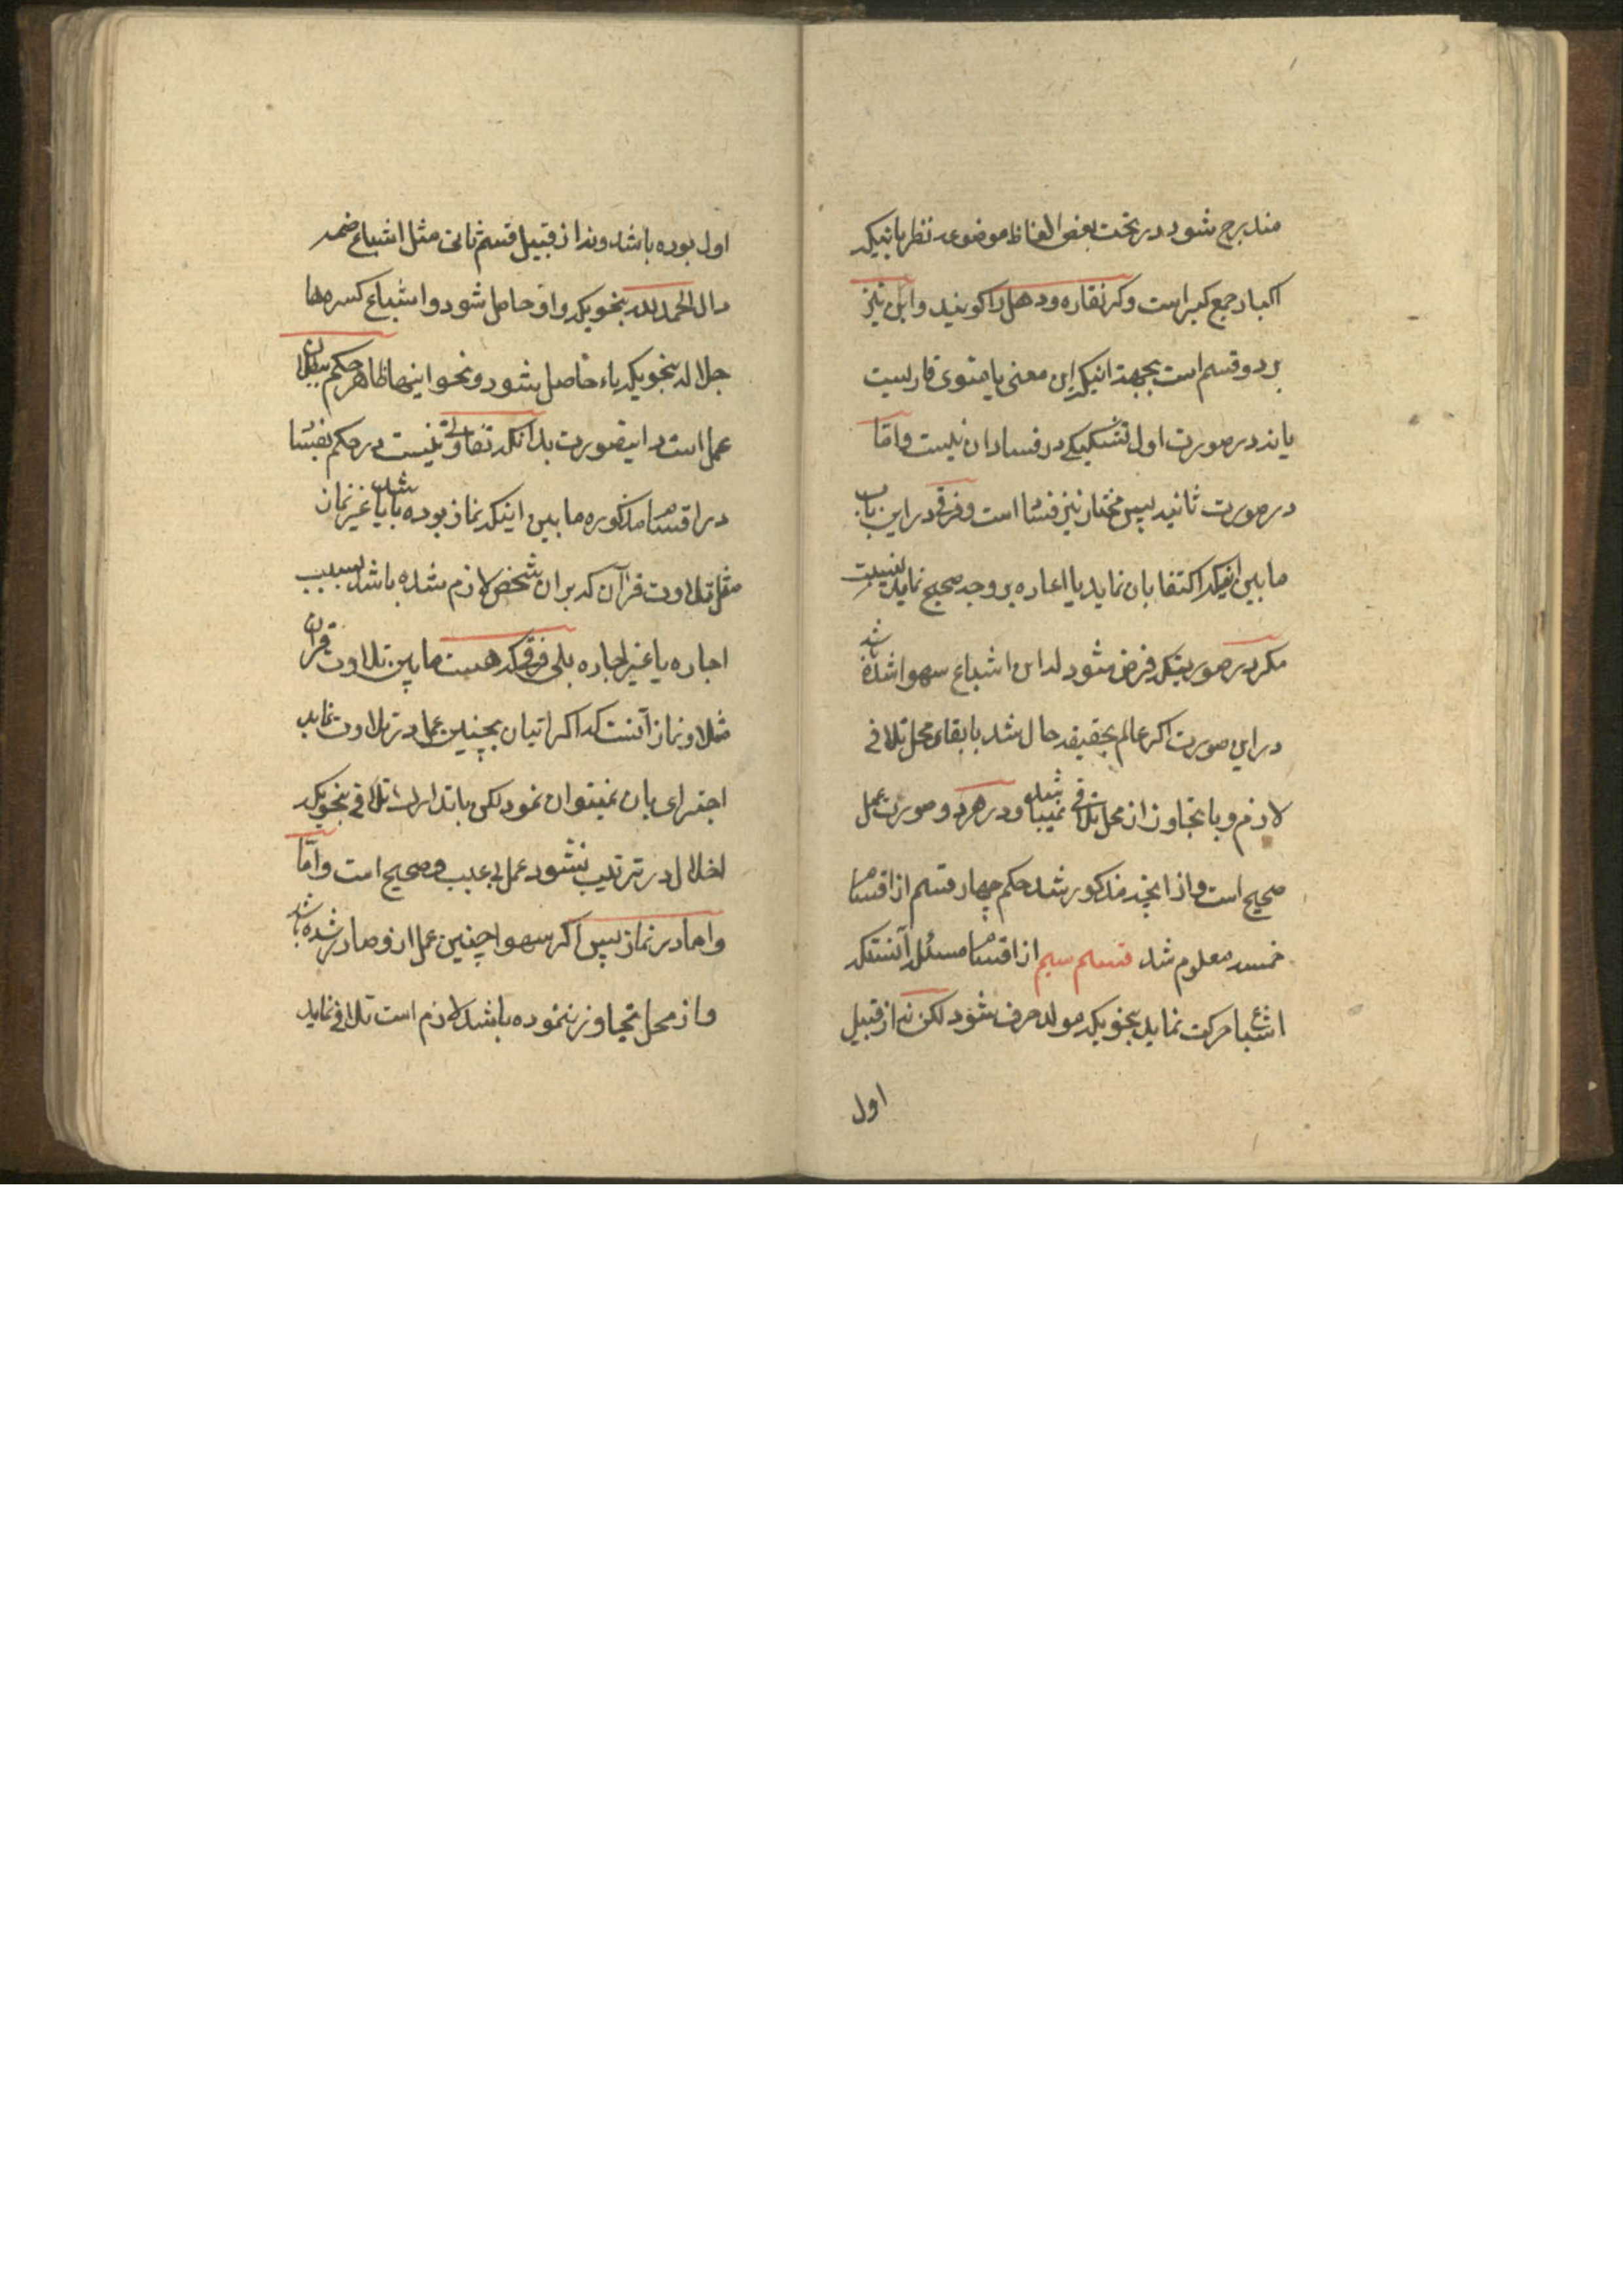 مندرج شود در تحت بعض الفاظ موضوعه نظر باینکه
اکبار جمع کبر است و کبر نقاره و دهل را کویند و این نیز
بر دو قسم است بجهة اینکه این معنی یا منوی قاریست
یا نه در صورت اول تشکیکی در فساد ان نیست و امّا
در صورت ثانیه پس مختار نیز فساد است و فرقی در این باب
ما بین اینکه اکتفا بان نماید یا اعاده بر وجه صحیح نماید نیست
مکر در صورتیکه فرض شود که این اشباع سهوا شده باشد
در این صورت اکر عالم بحقیقه حال شد با بقاء محل تلافی
لازم و با تجاوز از محل تلافی نمیباشد و در هر دو صورت عمل
صحیح است و از انچه مذکور شد حکم چهار قسم از اقسام
خمسه معلوم شد قسم سیم از اقسام مسئله آنستکه
اشباع حرکت نماید بنحویکه مولد حرف شود لکن نه از قبیل
اول
اول بوده باشد و نه از قبیل قسم ثانی مثل اشباع ضمه
دال الحمد لله بنحویکه واو حاصل شود و اشباع کسره هاء
جلاله بنحویکه یاء حاصل شود و نحو اینها ظاهر حکم ببطلان
عمل است در اینصورت بدانکه تفاوتی نیست در حکم بفساد
در اقسام مذکوره ما بین اینکه نماز بوده باشد یا غیر نماز
مثل تلاوت قرآن که بر ان شخص لازم شده باشد بسبب
اجاره یا غیر اجاره بلی فرقی که هست ما بین تلاوت قران
مثلا و نماز آنست که اکر اتیان بچنین عمل در تلاوت نماید
اجتزای بان نمیتوان نمود لکن با تدارک و تلافی بنحویکه
اخلال در ترتیب نشود عمل بی عیب و صحیح است و امّا
و اما در نماز پس اکر سهوا چنین عمل از او صادر شده باشد
و از محل تجاوز ننموده باشد لازم است تلافی نماید